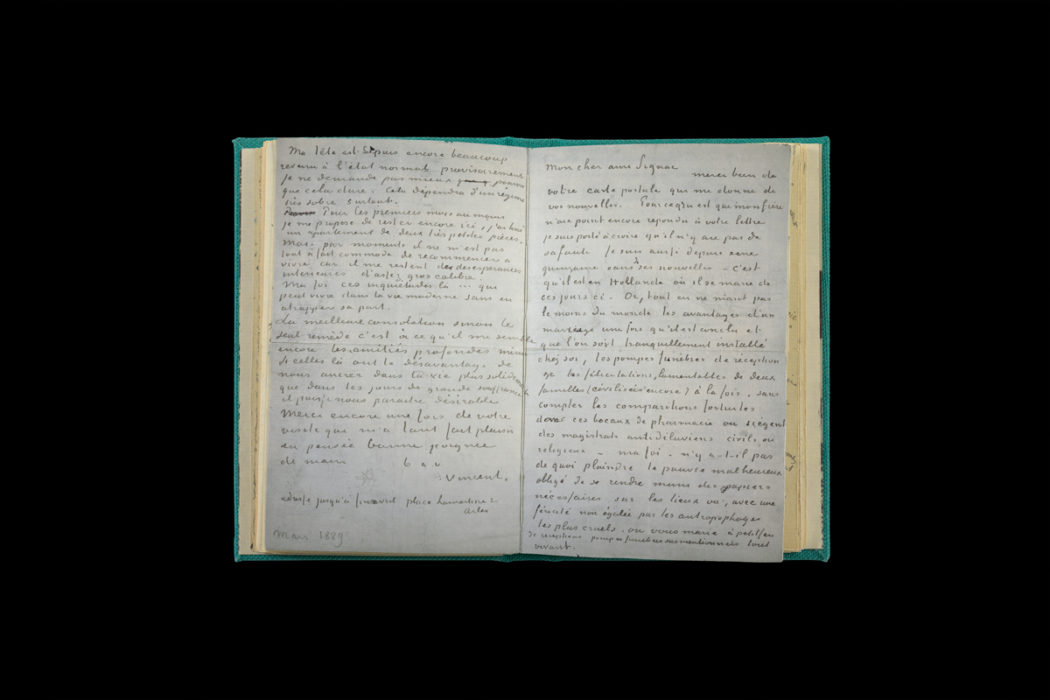 Ma tête est depuis encore beaucoup
revenu à l'état normal provisoirement
je ne demande pas mieux pourvu
que cela dure. Cela dépendra d'un régime
très sobre surtout.
Pour les premiers mois au moins
je me propose de rester encore ici, j'ai loué
un apartement de deux très petites pièces.
Mais par moments il ne m'est pas
tout à fait commode de recommencer à
vivre car il me restent des désespérances
intérieures d'assez gros calibre
Ma foi ces inquiétudes là ... qui
peut vivre dans la vie moderne sans en
attrapper sa part.
La meilleure consolation sinon le
seul remède c'est à ce qu'il me semble
encore les amitiés profondes même
si celles là ont le désavantage de
nous ancrer dans la vie plus solidement
que dans les jours de grande souffrance
il puisse nous paraître désirable
Merci encore une fois de votre
visite qui m'a tant fait plaisir
en pensée bonne poignée
de main b à v
Vincent.
adresse jusqu'à fin avril place Lamartine 2
Arles
Mars 1889
Mon cher ami Signac
merci bien de
votre carte postale qui me donne de
vos nouvelles. Pour ce qui est que mon frère
n'aie point encore répondu à votre lettre
je suis porté à croire qu'il n'y aie pas de
sa faute. Je suis aussi depuis une
quinzaine sans ses nouvelles – c'est
qu'il est en Hollande où il se marie de
ces jours ci. Or, tout en ne niant pas
le moins du monde les avantages d'un
mariage une fois qu'il est conclu et
que l'on soit tranquillement installé
chez soi, les pompes funèbres de réception
&c les félicitations lamentables de deux
familles (civilisées encore) à la fois, sans
compter les comparitions fortuites
dans ces bocaux de pharmacie où siègent
des magistrats antidiluviens civils ou
religieux – ma foi – n'y a-t-il pas
de quoi plaindre le pauvre malheureux
obligé de se rendre muni des papiers
nécessaires sur les lieux où, avec une
férocité non égalée par les antropophages
les plus cruels, on vous marie à petit feu
de réceptions pompes funèbres susmentionnées tout
vivant.